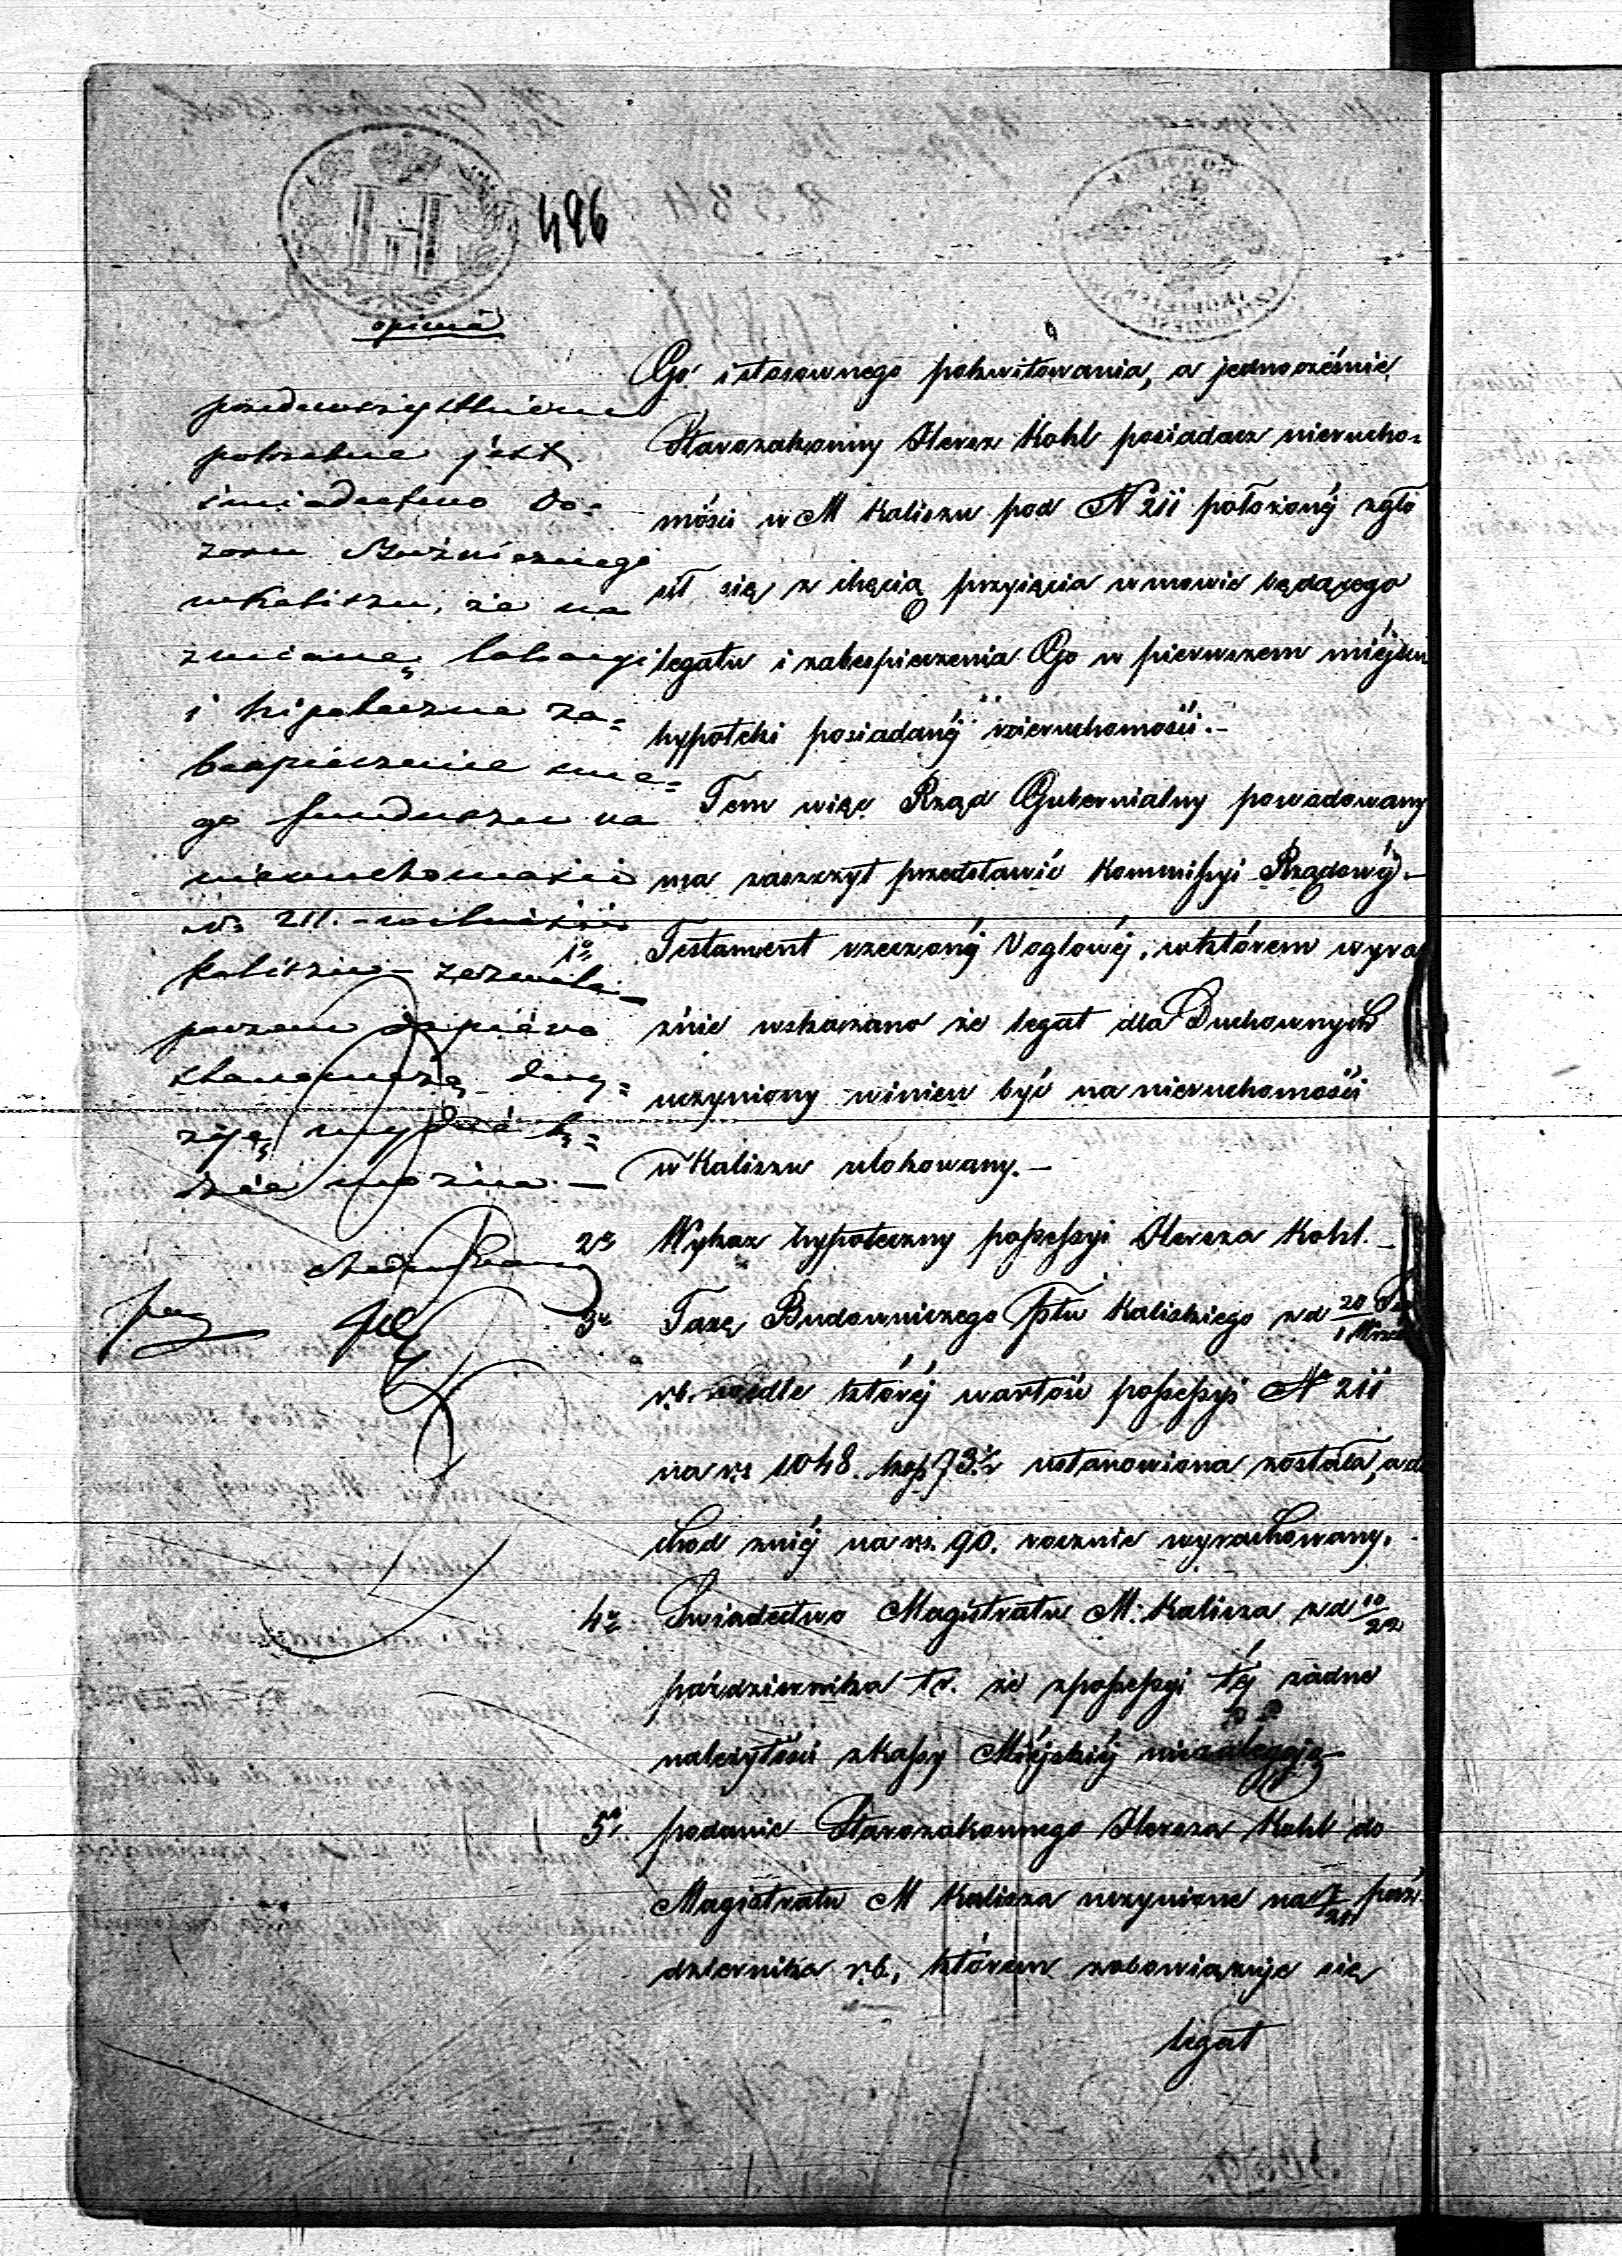 496
opinia
przedewszystkiem
potrzebne jest
świadectwo Do=
zoru Bożniczego
w Kaliszu, że na
zmianę lokacyi
i hipoteczne za=
bezpieczenie swe=
go funduszu na
nieruchomości
No 211. w mieście
Kaliszu zezwala
poczem dopiero
stanowczą decy=
zyę wydać bę=
dzie można. —
Go i stosownego pokwitowania, a jednocześnie
Starozakonny Hersz Kohl posiadacz nierucho=
mości w M Kaliszu pod N 211 położonéj zgło
sił się z chęcią przyięcia w mowie będącego
legatu i zabespieczenia Go w pierwszem miéjscu
hypoteki posiadanéj nieruchomości. —
Tem więc Rząd Gubernialny powodowany
ma zaszczyt przedstawić Kommissyi Rządowéj —
1o Testament rzeczonéj Voglowéj, w którem wyra
źnie wskazano że legat dla Duchownych
uczyniony winien być na nieruchomości
w Kaliszu ulokowany. —
2o Wykaz hypoteczny possessyi Hersza Kohl. —
3o Taxę Budowniczego Ptu Kaliskiego z d 20 / 1 Wrze
rb. wedle któréj wartość possessyi No 211
na rs 1048. kop 73½ ustanowiona została, a do
chod z niéj na rs. 90. rocznie wyrachowany.
4o Swiadectwo Magistratu M. Kalisza z d 10/22
października tr. że z possessyi téj żadne
należytości z kassy Miéjskiéj nie zalegają
5o podanie Starozakonnego Hersza Kohl do
Magistratu M Kalisza uczynione na /21 paź
dziernika rb, którem zobowiązuje się
legat